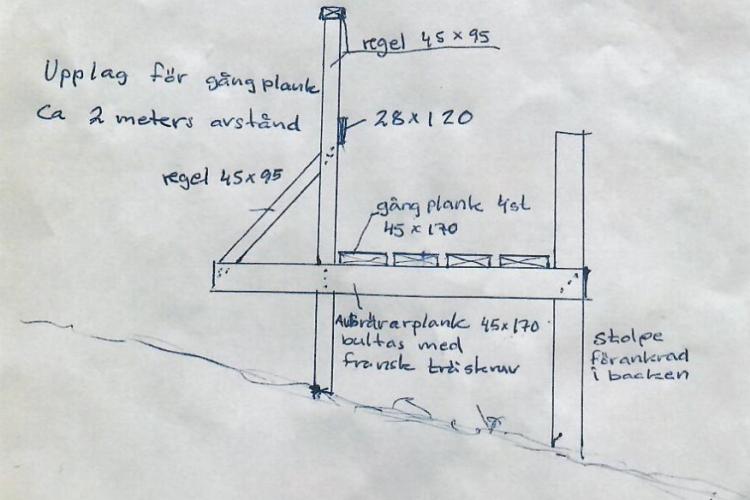 regel 45 x 95
Upplag för gångplank
Ca 2 meters avstånd
28 x 120
regel 45x95
gångplank 4st
45 x 170
plank 45x170
bultas med
fransk träskruv
Stolpe
förankrad
i backen